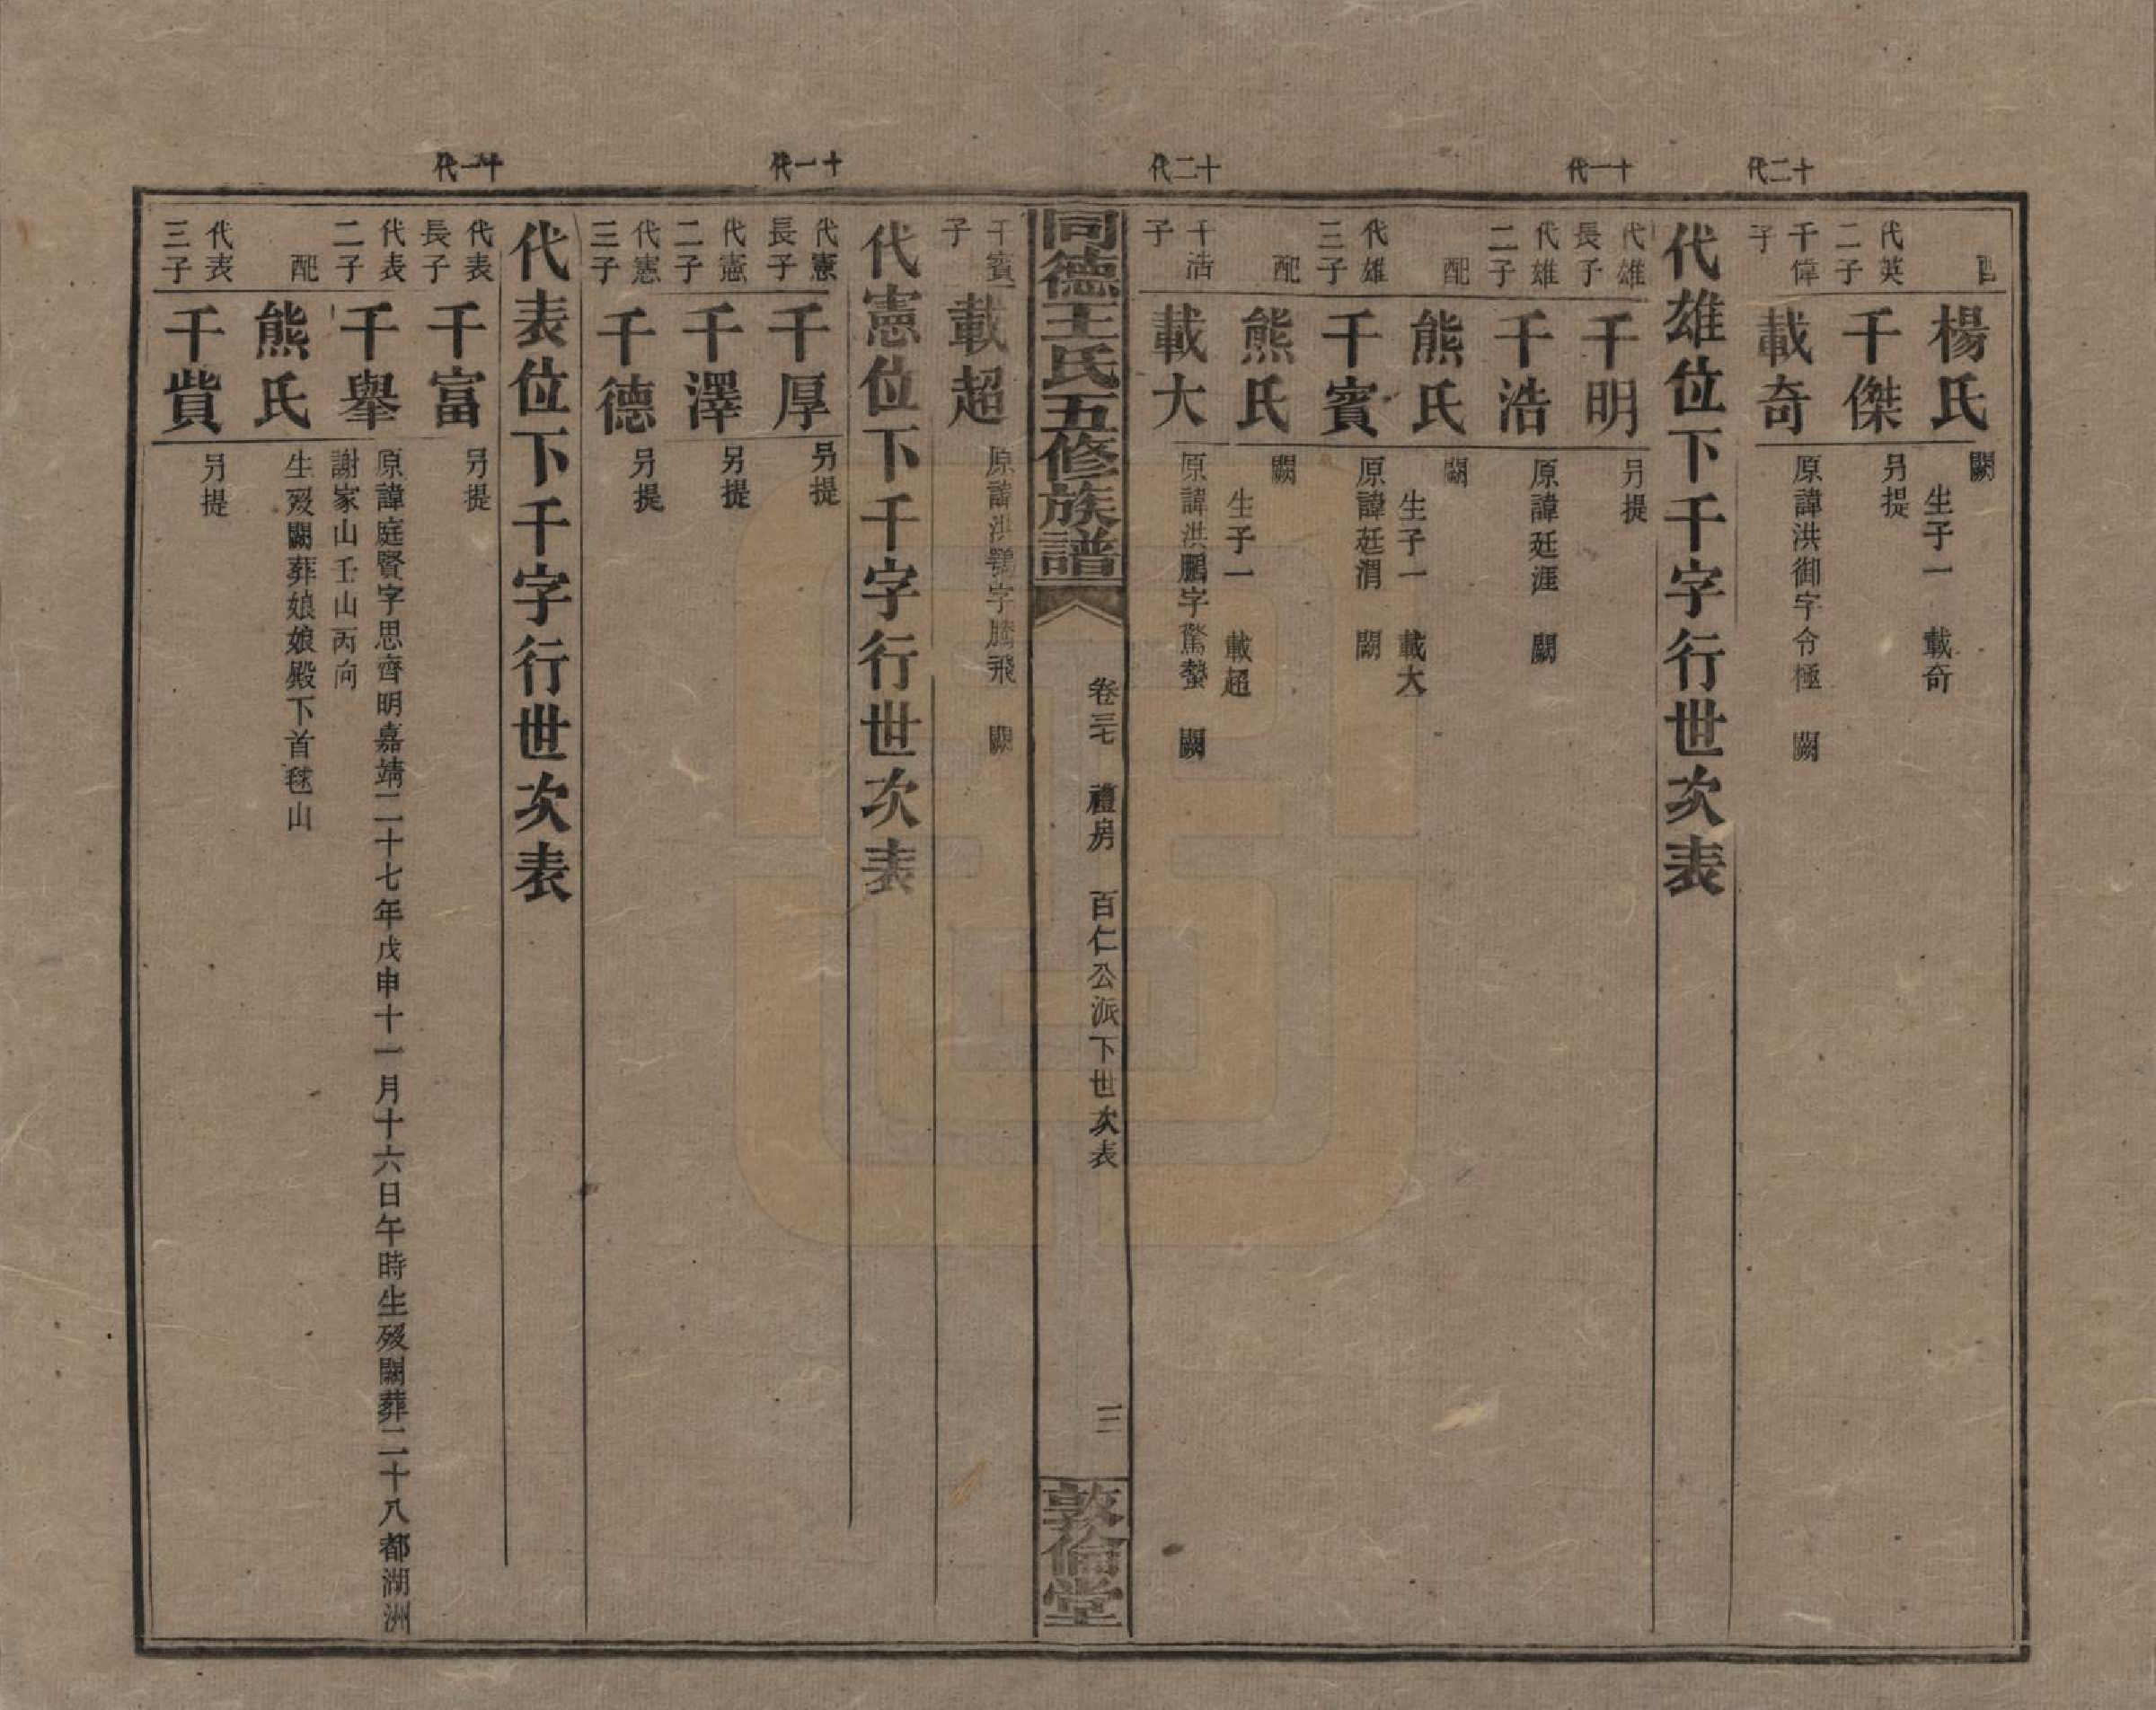 十二代
十一代
十二代
十一代
十一代
配
楊氏
闕
生子一 載奇
代英二子
千傑
另提
千偉子
載奇
原諱洪御字令極 闕
代雄位下千字行世次表
代雄長子
千明
另提
代雄二子
千浩
原諱廷涯 闕
配
熊氏
闕
生子一 載大
代雄三子
千賓
原諱廷渭 闕
配
熊氏
闕
生子一 載超
千浩子
載大
原諱洪鵬字驚鰲 闕
同德王氏五修族譜
卷三七 禮房 百仁公派下世次表
三
敦倫堂
千賓子
載超
原諱洪鶚字騰飛 闕
代憲位下千字行世次表
代憲長子
千厚
另提
代憲二子
千澤
另提
代憲三子
千德
另提
代表位下千字行世次表
代表長子
千富
另提
代表二子
千舉
原諱庭賢字思齊明嘉靖二十七年戊申十一月十六日午時生歿闕葬二十八都湖洲
謝家山壬山丙向
配
熊氏
生歿闕葬娘娘殿下首毬山
代表三子
千貲
另提